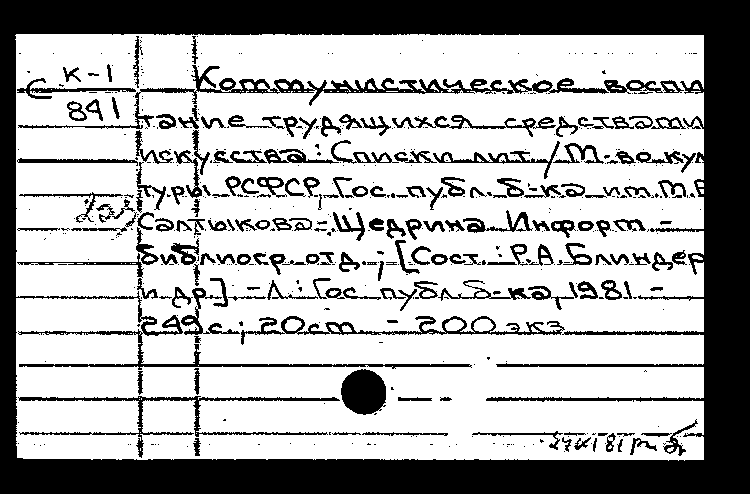 С К-1
841
Коммунистическое воспи
тание трудящихся средствами
искусства: Списки лит. / М-во кул
туры РСФСР, Гос. публ. б-ка им. М.Е
Салтыкова-Щедрина Информ -
библиогр. отд.; [Сост.: Р.А. Блиндер
и др.]. - Л.: Гос публ. б-ка, 1981 -
249 с.; 20 см. - 200 экз
2 аз